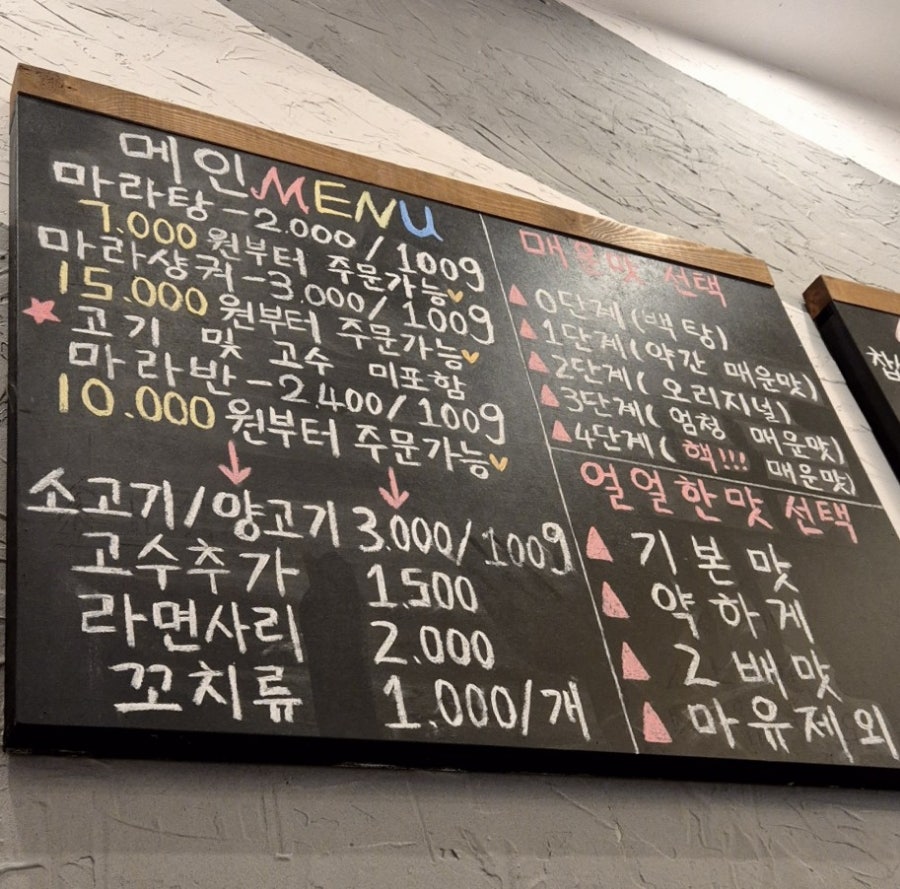 메인 MENU
마라탕-2.000/100g
7.000원부터 주문가능
마라샹궈-3.000/100g
15.000원부터 주문가능
★고기 및 고수 미포함
마라반-2.400/100g
10.000원부터 주문가능
소고기/양고기 3.000/100g
고수추가 1.500
라면사리 2.000
꼬치류 1.000/개
매운맛 선택
0단계(백탕)
1단계(약간 매운맛)
2단계(오리지널)
3단계(엄청 매운맛)
4단계(핵!!! 매운맛)
얼얼한맛 선택
기본맛
약하게
2배맛
마유제외